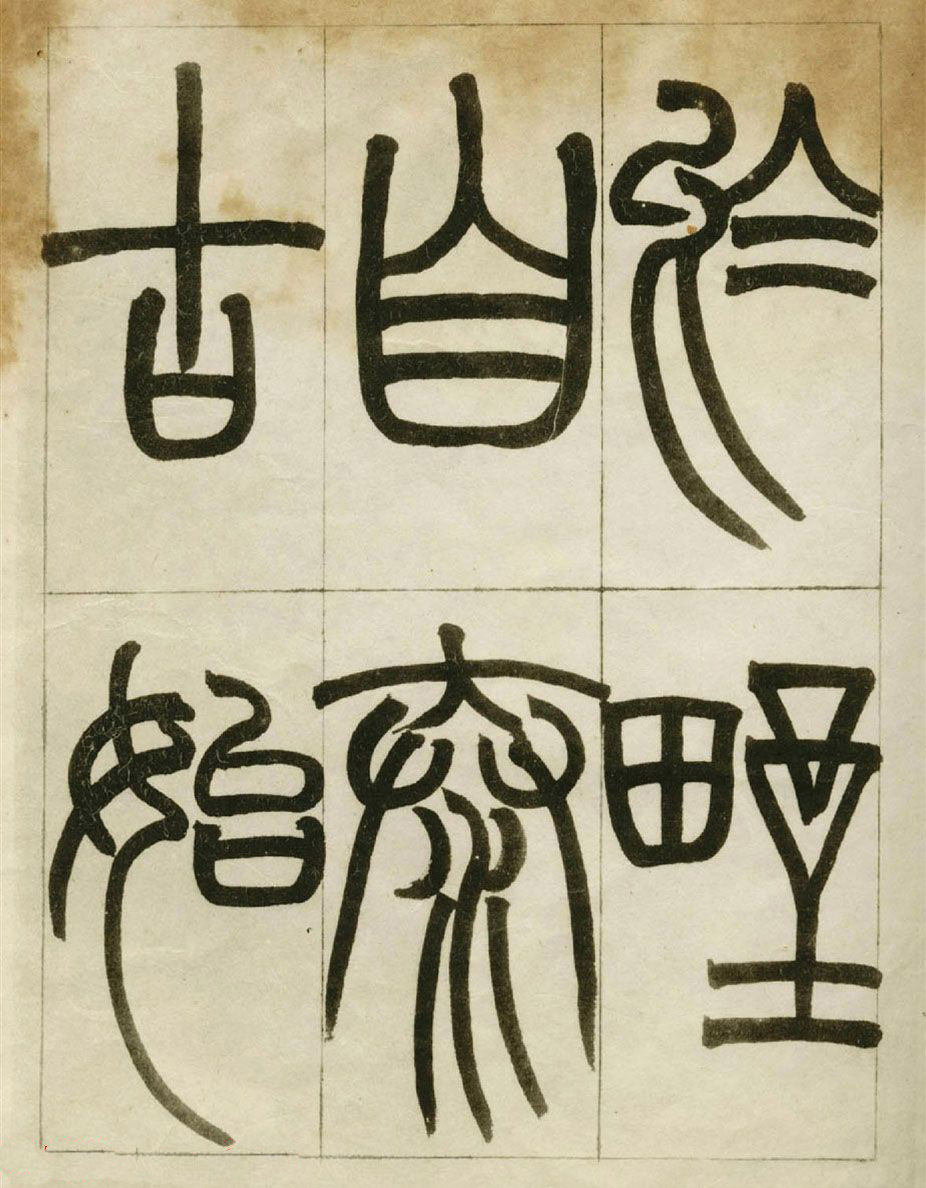 於野
自泰
古始